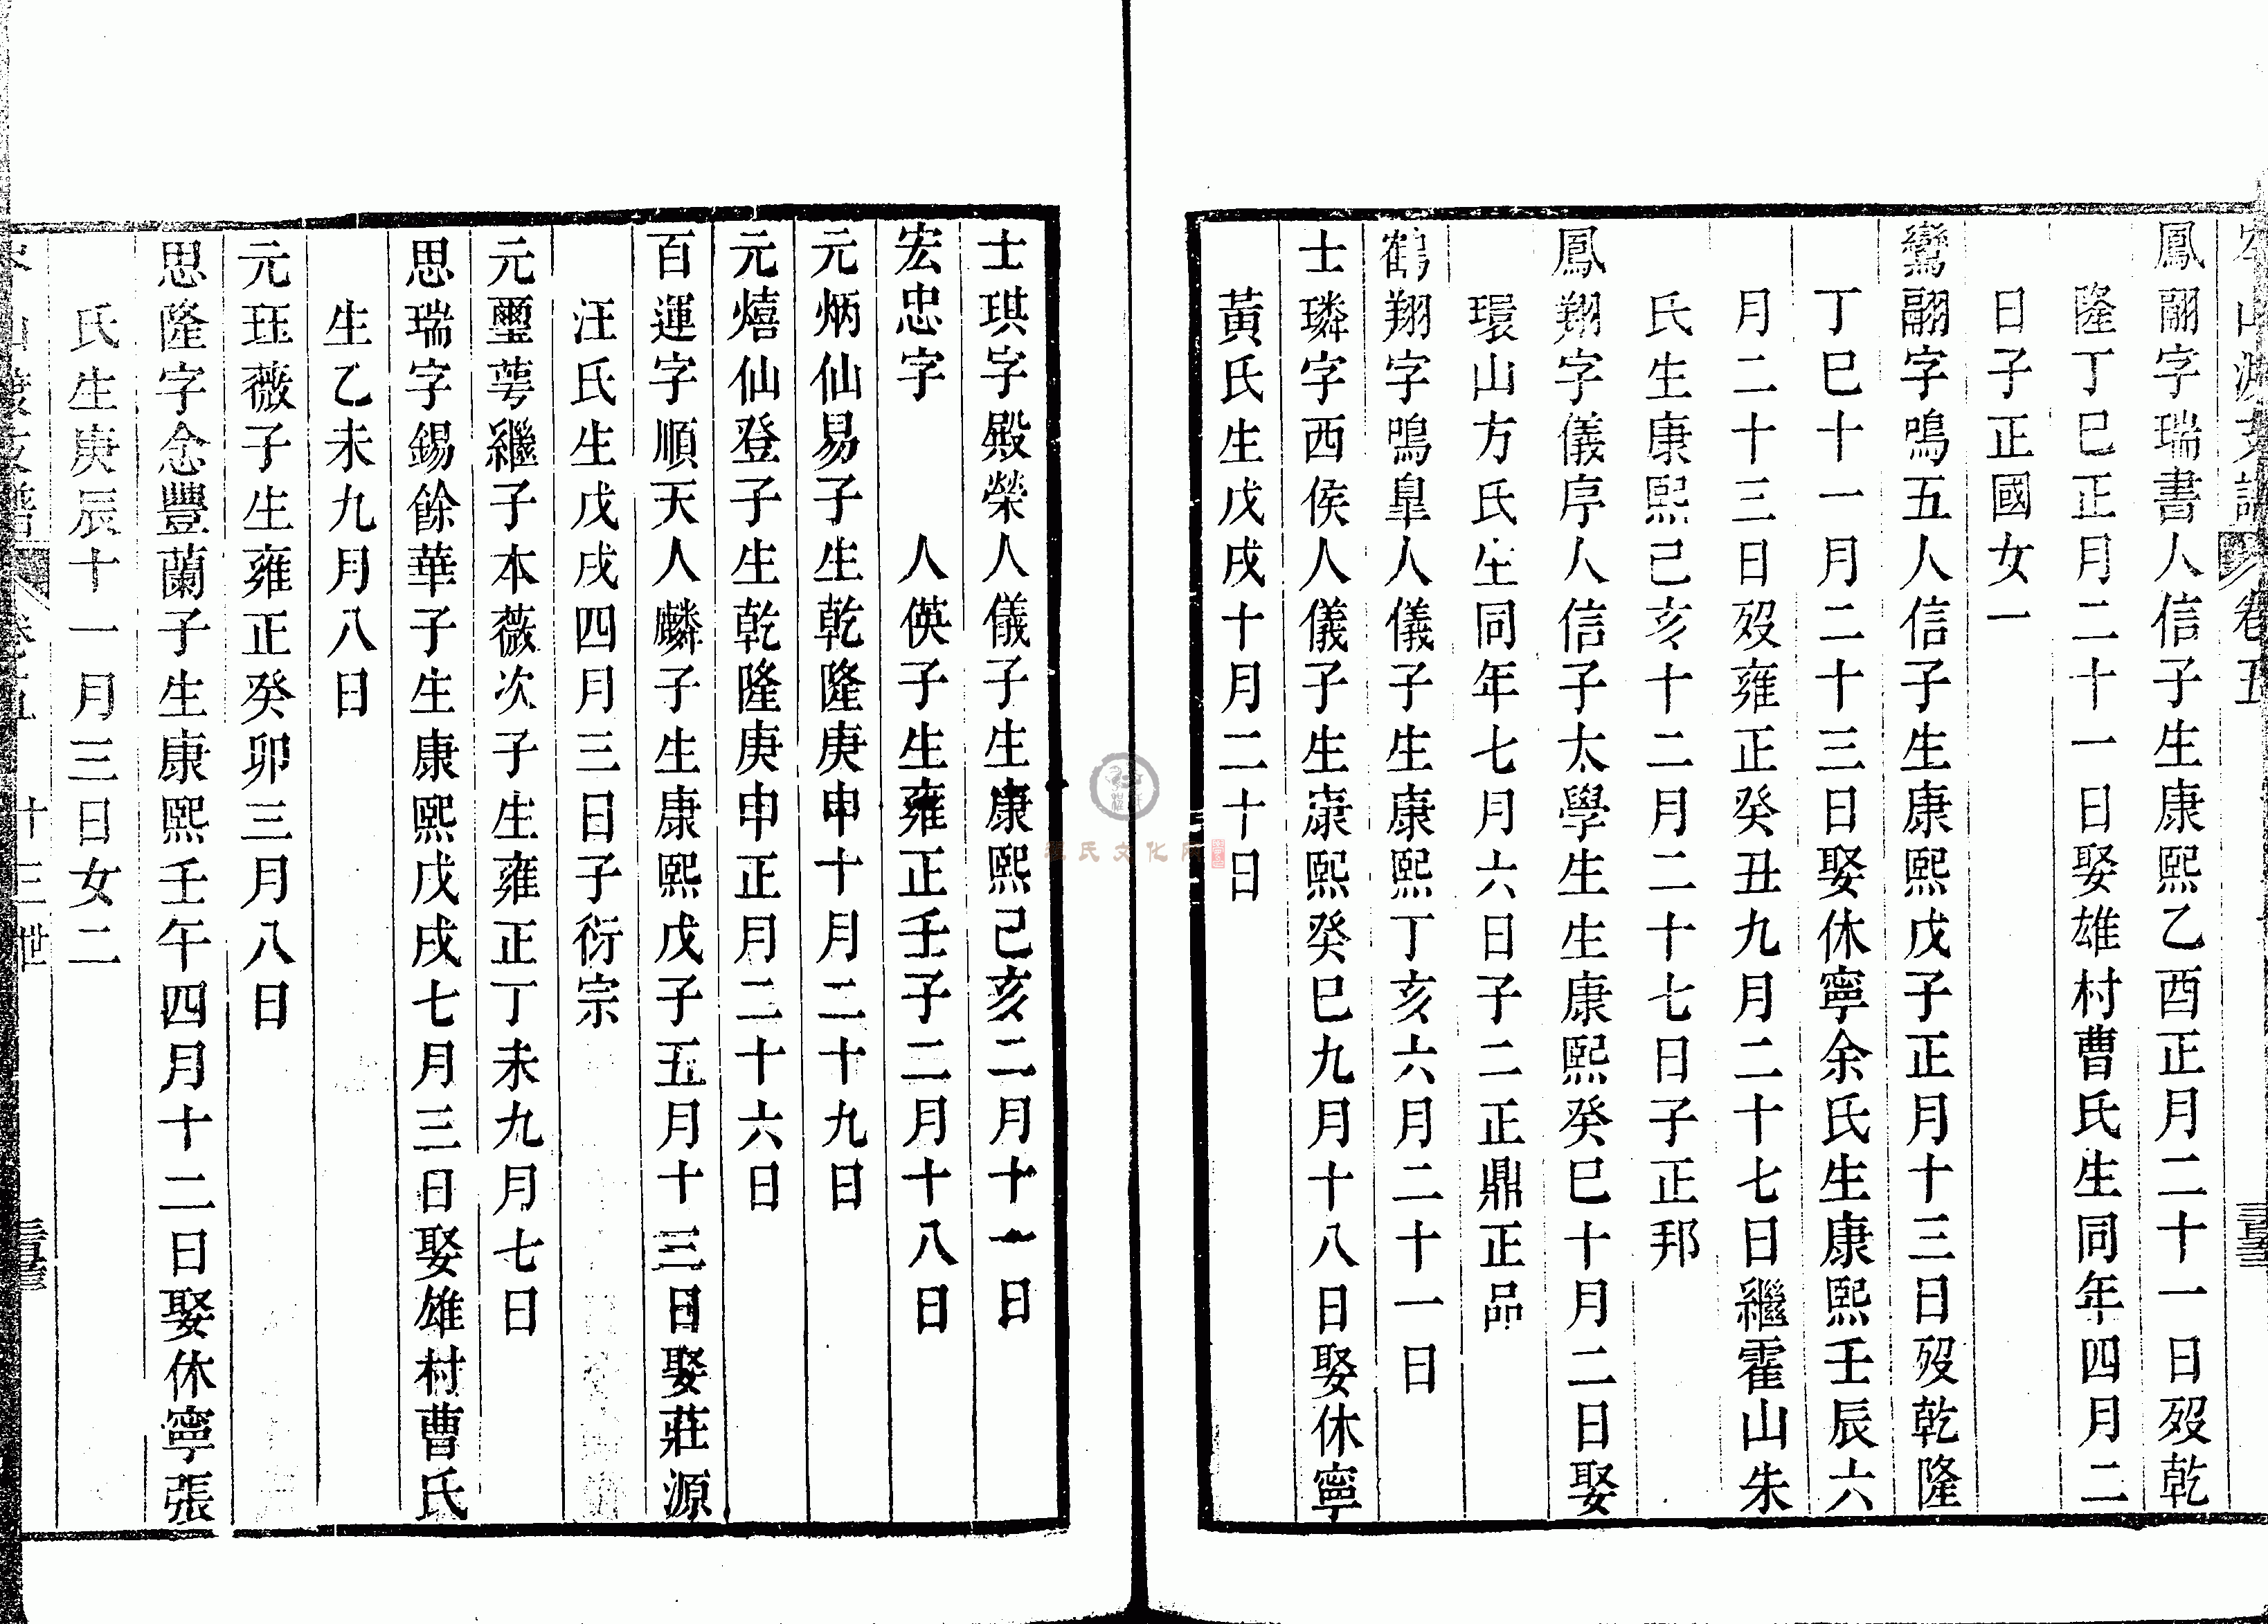 卷五
鳳翮字瑞書人信子生康熙乙酉正月二十一日歿乾
隆丁巳正月二十一日娶雄村曹氏生同年四月二
日子正國女一
鸞翮字鳴五人信子生康熙戊子正月十三日歿乾隆
丁巳十一月二十三日娶休寧余氏生康熙壬辰六
月二十三日歿雍正癸丑九月二十七日繼霍山朱
氏生康熙己亥十二月二十七日子正邦
鳳翔字儀序人信子太學生生康熙癸巳十月二日娶
環山方氏生同年七月六日子二正鼎正品
鶴翔字鳴臯人儀子生康熙丁亥六月二十一日
士璘字西侯人儀子生康熙癸巳九月十八日娶休寧
黃氏生戊戌十月二十日
士琪字殿榮人儀子生康熙己亥二月十一日
宏忠字　人偀子生雍正壬子二月十八日
元炳仙易子生乾隆庚申十月二十九日
元熺仙登子生乾隆庚申正月二十六日
百運字順天人麟子生康熙戊子五月十三日娶莊源
汪氏生戊戌四月三日子衍宗
元璽萼繼子本薇次子生雍正丁未九月七日
思瑞字錫餘華子生康熙戊戌七月三日娶雄村曹氏
生乙未九月八日
元珏薇子生雍正癸卯三月八日
思隆字念豐蘭子生康熙壬午四月十二日娶休寧張
氏生庚辰十一月三日女二
十三世
氏文化